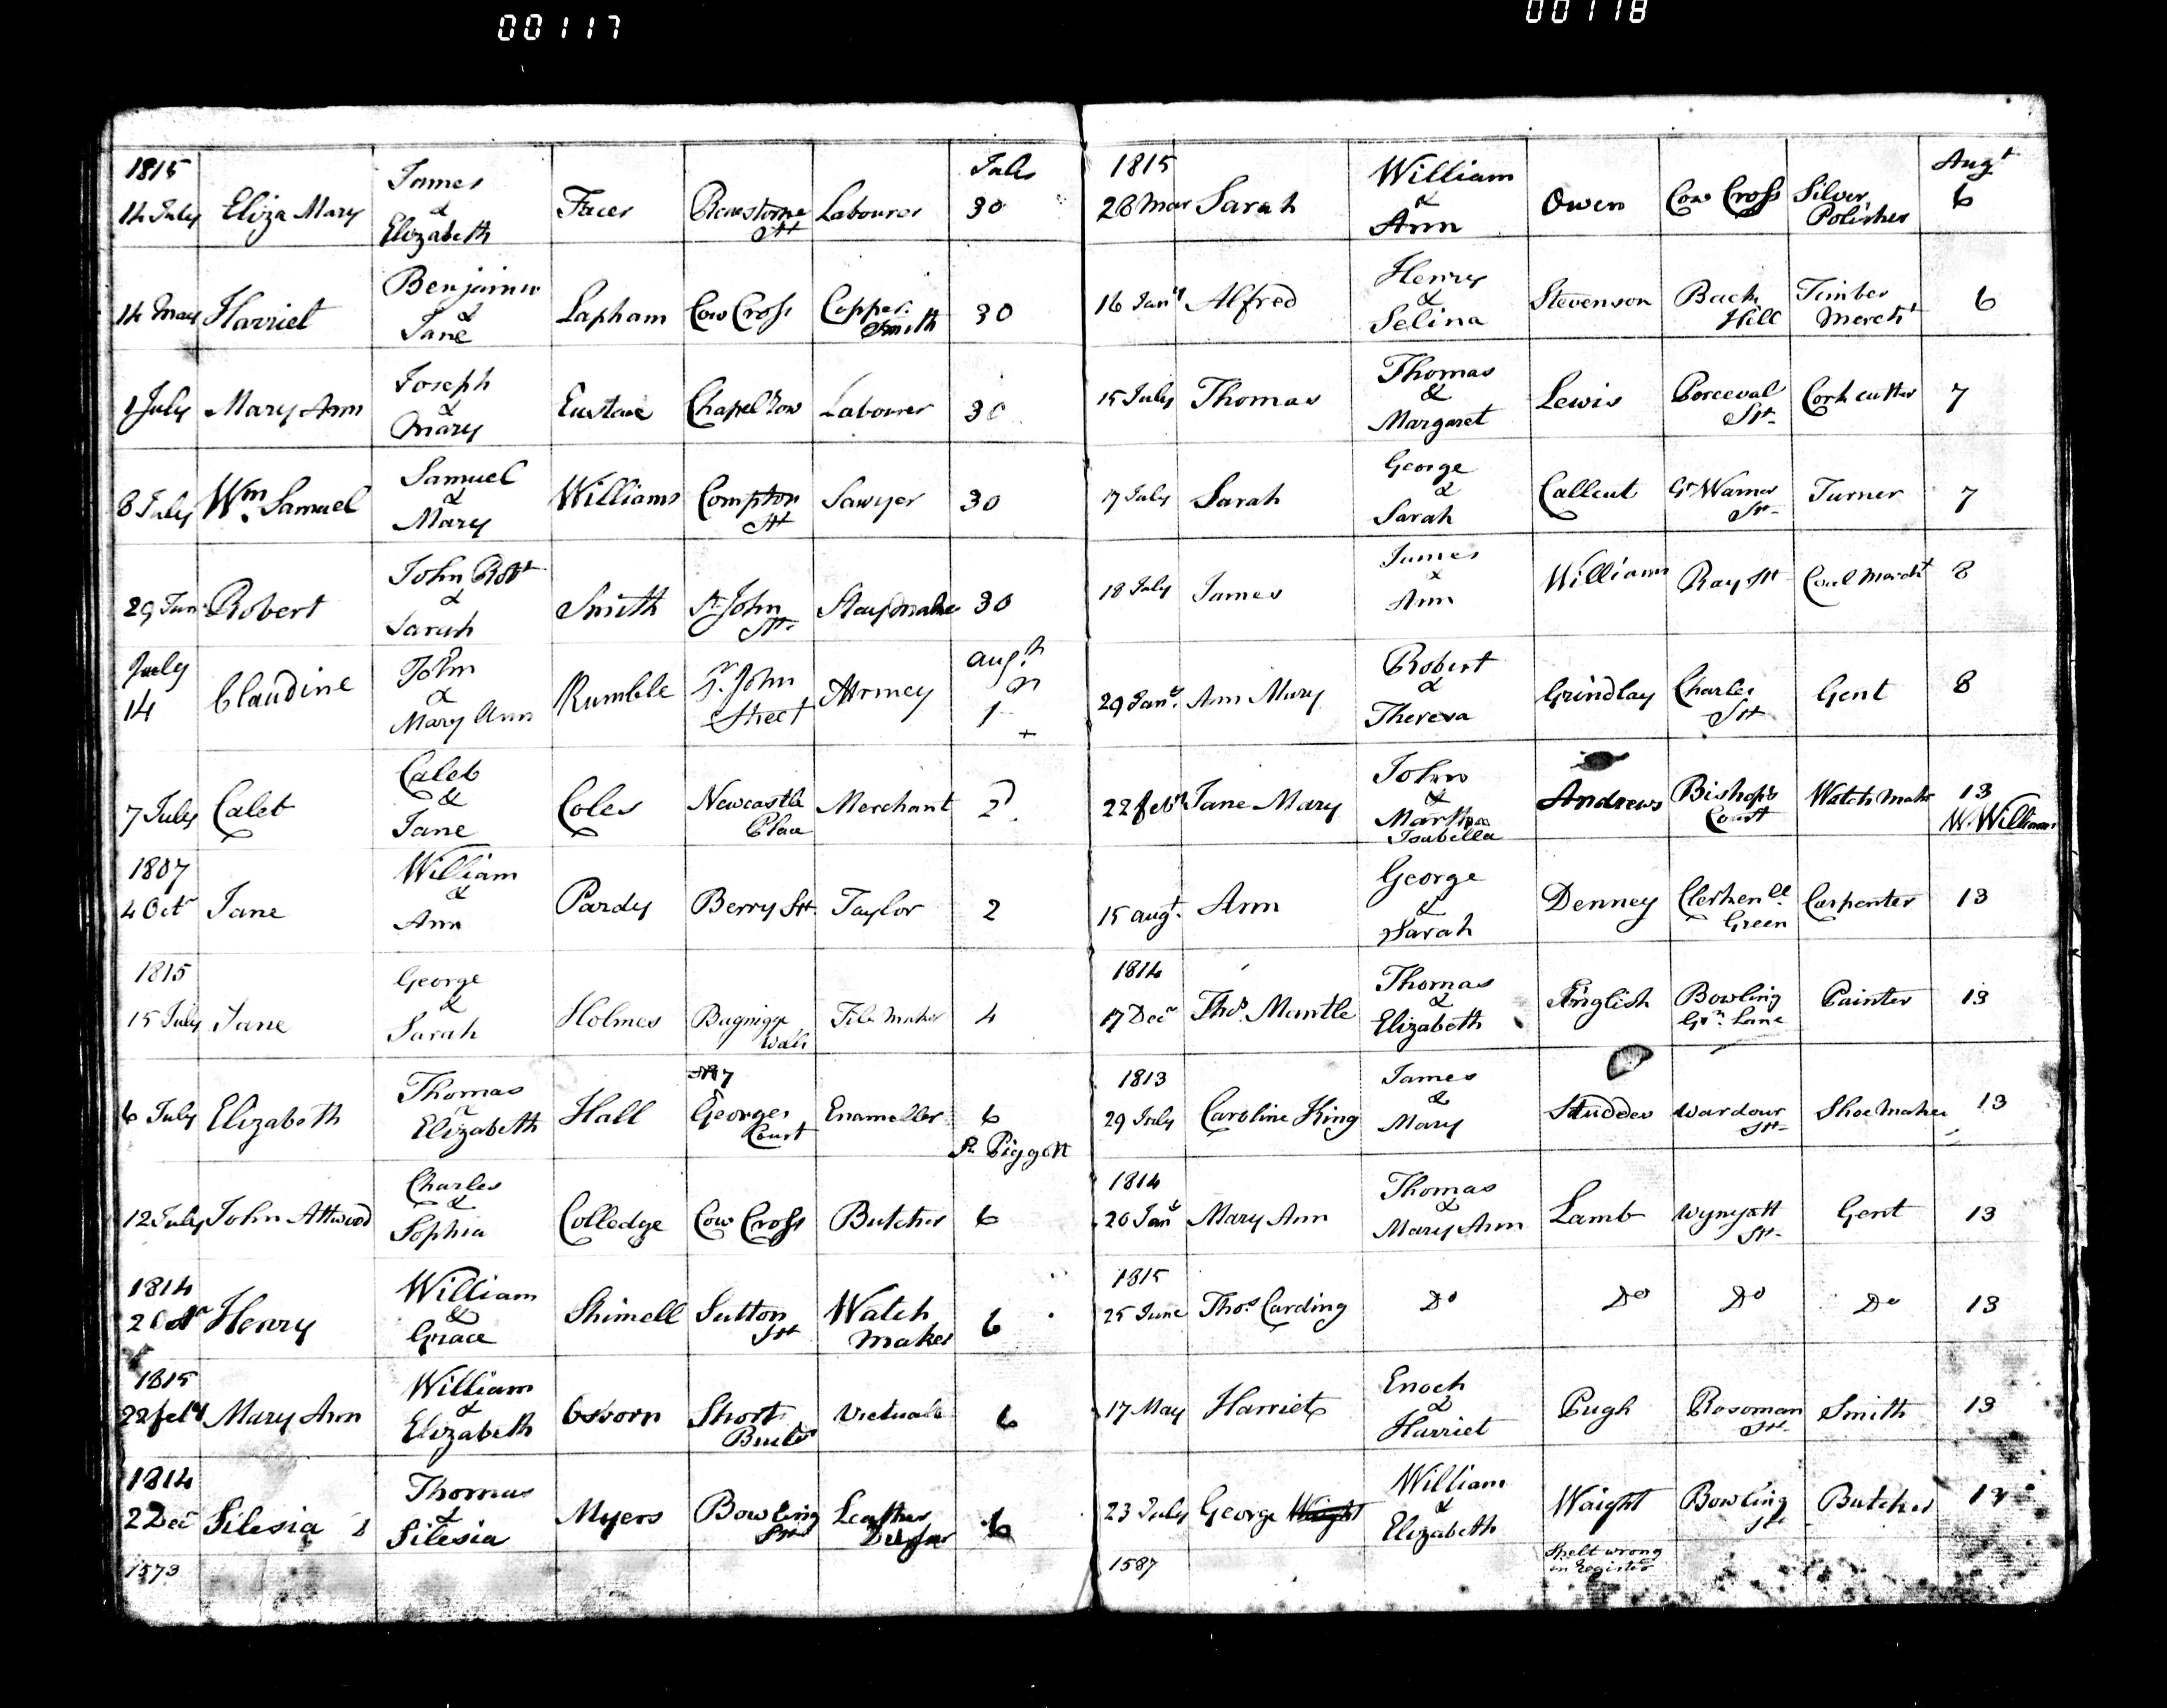 00117
1815 July
14 July Eliza Mary James & Elizabeth Facer St Labourer 30
14 May Harriet Benjamin & Jane Lapham Cow Cross Copper Smith 30
1 July Mary Ann Joseph & Mary Eustace Chapel Row Labourer 30
8 July Wm Samuel Samuel & Mary Williams Compton St Sawyer 30
29 Jun Robert John Robt & Sarah Smith St John St Staymaker 30
July 14 Claudine John & Mary Ann Rumble St John Street Attorney Augst 1
7 July Caleb Caleb & Jane Coles Newcastle Place Merchant 2
1807
4 Octr Jane William & Ann Pardy Berry St Taylor 2
1815
15 July Jane George & Sarah Holmes Bagnigge Wells File Maker 4
6 July Elizabeth Thomas & Elizabeth Hall 7 Georges Court Enameller 6
R Piggott
12 July John Attwood Charles & Sophia Colledge Cow Cross Butcher 6
1814
2 Octr Henry William & Grace Shimell Sutton St Watch Maker 6
1815
22 feby Mary Ann William & Elizabeth Osborn Short Buildgs Victuall 6
1814
2 Decr Silesia Thomas & Silesia Myers Bowling St Leather Dresser 6
1573
00118
1815 Augt
28 Mar Sarah William & Ann Owen Cow Cross Silver Polisher 6
16 Jany Alfred Henry & Selina Stevenson Back Hill Timber Mercht 6
15 July Thomas Thomas & Margaret Lewis Perceval St Cork cutter 7
17 July Sarah George & Sarah Callcut Gt Warner St Turner 7
18 July James James & Ann Williams Ray St Coal Mercht 8
29 Jany Ann Mary Robert & Theresa Grindlay Charles St Gent 8
22 feby Jane Mary John & Martha Isabella Andrews Bishops Court Watch Maker 13
W. Williams
15 augt Ann George & Sarah Denney Clerkenll Green Carpenter 13
1814
17 Decr Thos Mantle Thomas & Elizabeth English Bowling Grn Lane Painter 13
1813
29 July Caroline King James & Mary Studder Wardour St Shoe Maker 13
1814
20 Jany Mary Ann Thomas & Mary Ann Lamb Wynyatt St Gent 13
1815
25 June Thos Carding Do Do Do Do 13
17 May Harriet Enoch & Harriet Pugh Rosoman St Smith 13
23 July George Wright William & Elizabeth Waight Bowling St Butcher 13
1587 Spelt wrong in Register